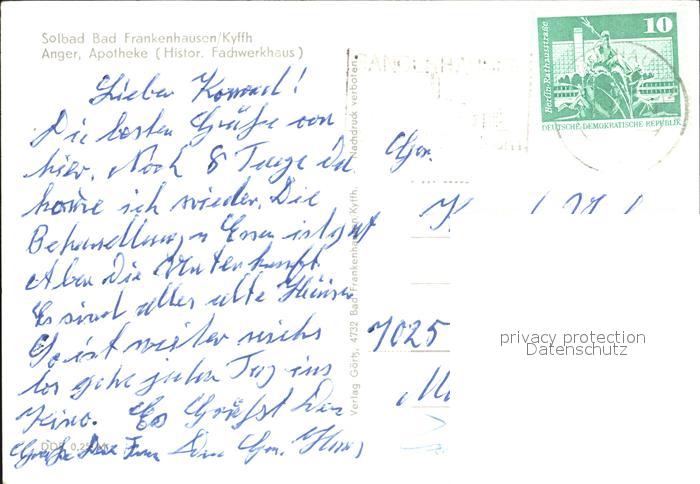 Solbad Bad Frankenhausen/Kyffh
Anger, Apotheke (Histor. Fachwerkhaus)
Lieber Konrad!
Die besten Grüße von
hier. Noch 8 Tage da
komme ich wieder. Die
Behandlung u Essen ist gut
Aber die Unterkunft
Es sind alles alte Häuser
So ist weiter nichts
los gehe jeden Tag ins
Kino. Es Grüßst Dein
Grüße Deine Frau Dein
DDR 0,25
Verlag Görtz, 4732 Bad Frankenhausen/Kyffh. Nachdruck verboten.
10
Berlin-Rathausstraße
DEUTSCHE DEMOKRATISCHE REPUBLIK
7025
privacy protection
Datenschutz